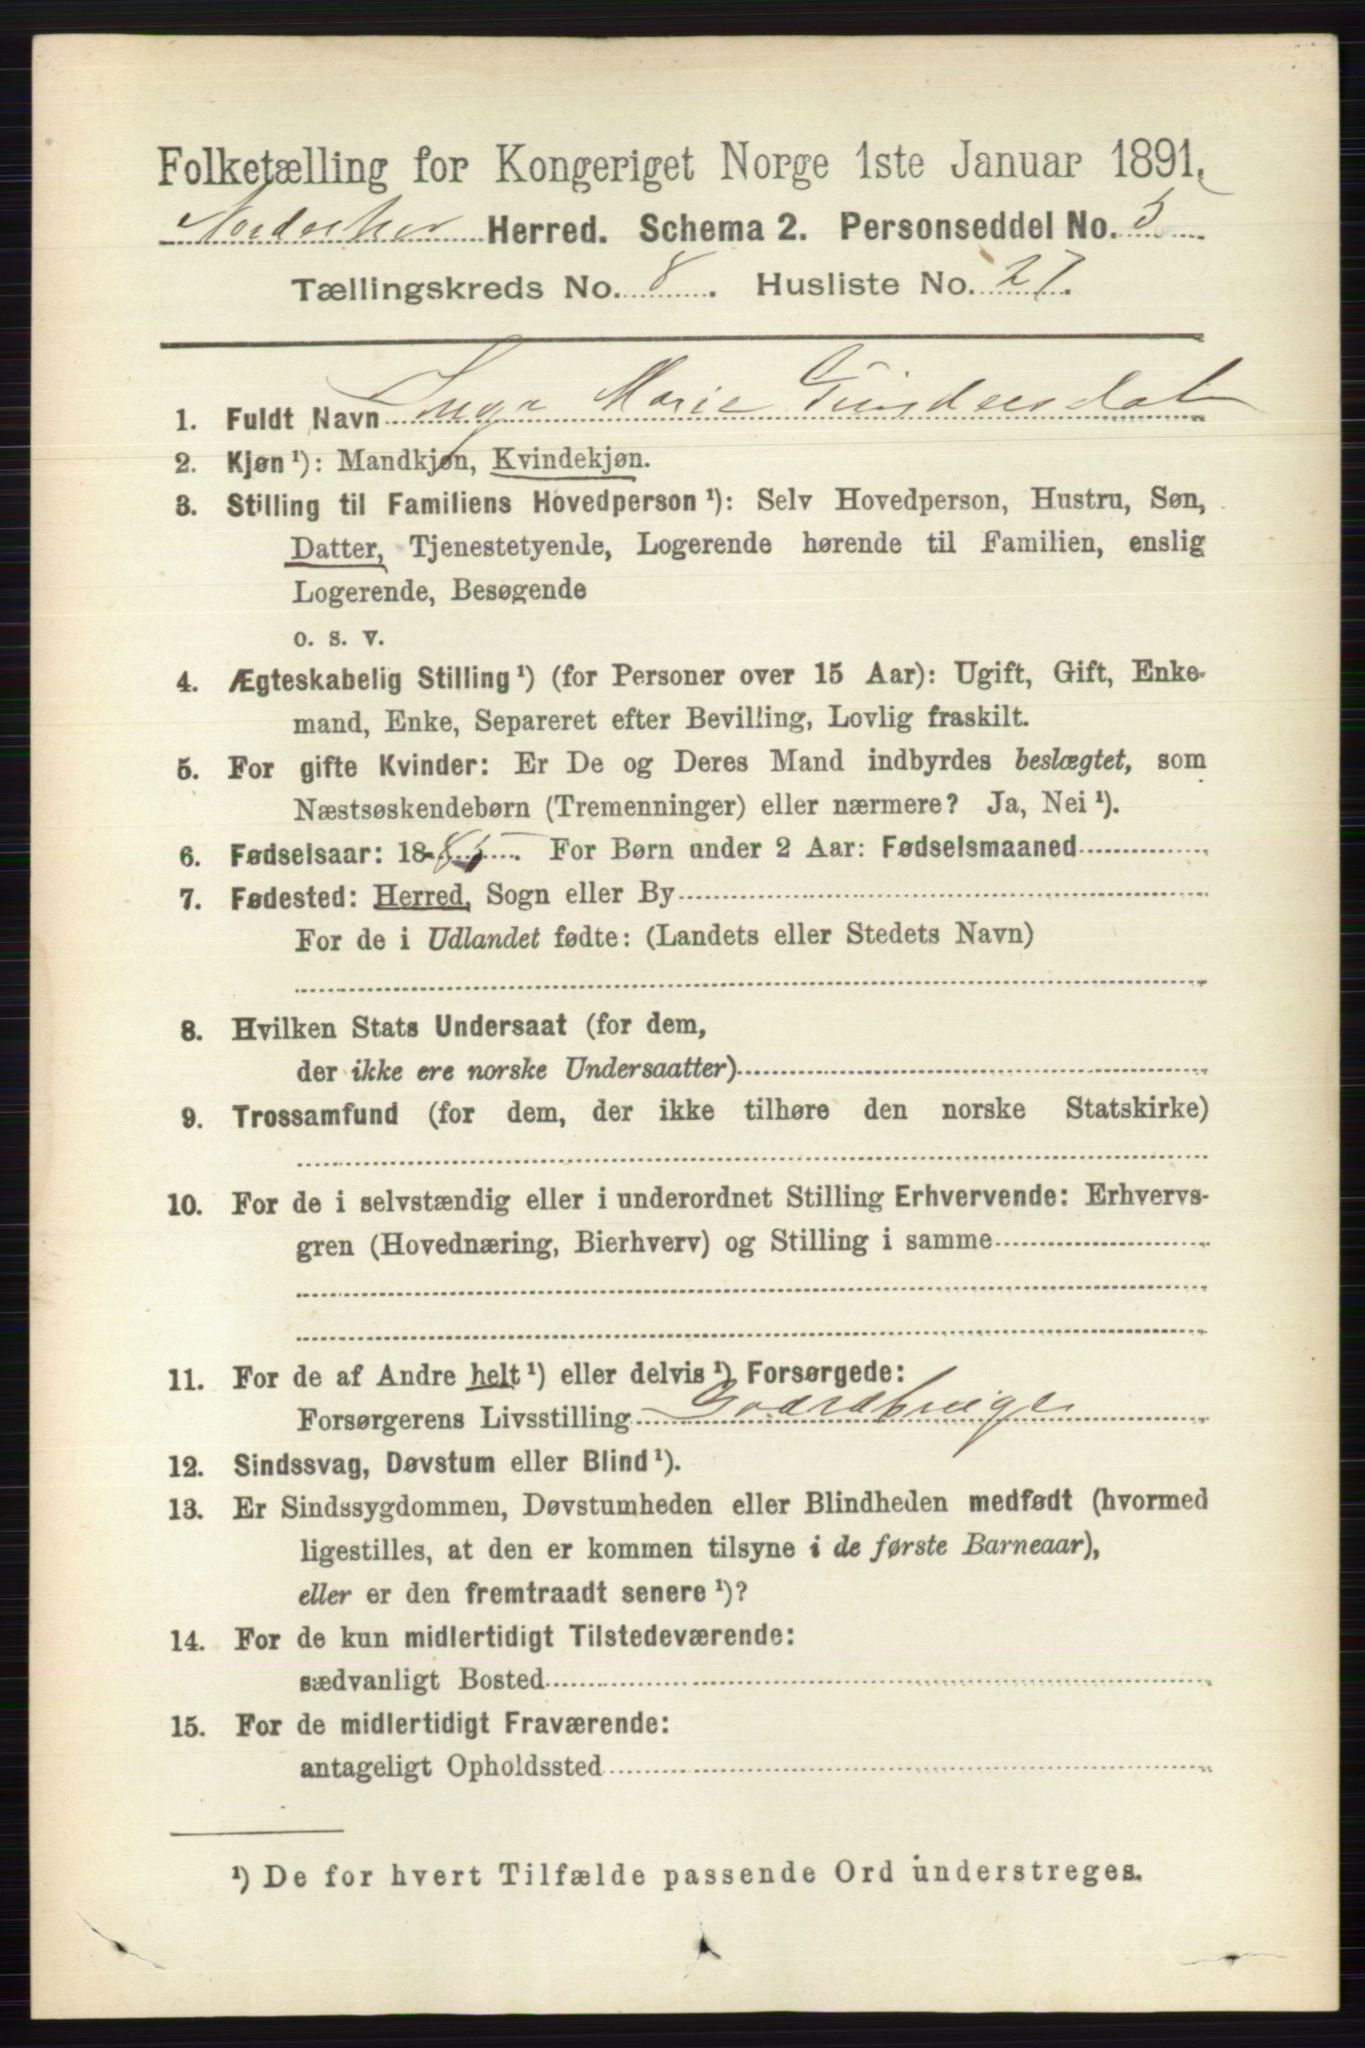 Folketælling for Kongeriget Norge 1ste Januar 1891.
Herred. Schema 2. Personseddel No. 5
Tællingskreds No. 8. Husliste No. 27.
1. Fuldt Navn Inga Marie
2. Kjøn¹): Mandkjøn, Kvindekjøn.
3. Stilling til Familiens Hovedperson¹): Selv Hovedperson, Hustru, Søn,
Datter, Tjenestetyende, Logerende hørende til Familien, enslig
Logerende, Besøgende
o. s. v.
4. Ægteskabelig Stilling¹) (for Personer over 15 Aar): Ugift, Gift, Enke-
mand, Enke, Separeret efter Bevilling, Lovlig fraskilt.
5. For gifte Kvinder: Er De og Deres Mand indbyrdes beslægtet, som
Næstsøskendebørn (Tremenninger) eller nærmere? Ja, Nei¹).
6. Fødselsaar: 1885. For Børn under 2 Aar: Fødselsmaaned
7. Fødested: Herred, Sogn eller By
For de i Udlandet fødte: (Landets eller Stedets Navn)
8. Hvilken Stats Undersaat (for dem,
der ikke ere norske Undersaatter)
9. Trossamfund (for dem, der ikke tilhøre den norske Statskirke)
10. For de i selvstændig eller i underordnet Stilling Erhvervende: Erhvervs-
gren (Hovednæring, Bierhverv) og Stilling i samme
11. For de af Andre helt¹) eller delvis¹) Forsørgede:
Forsørgerens Livsstilling Gaardbruger
12. Sindssvag, Døvstum eller Blind¹).
13. Er Sindssygdommen, Døvstumheden eller Blindheden medfødt (hvormed
ligestilles, at den er kommen tilsyne i de første Barneaar),
eller er den fremtraadt senere¹)?
14. For de kun midlertidigt Tilstedeværende:
sædvanligt Bosted
15. For de midlertidigt Fraværende:
antageligt Opholdssted
¹) De for hvert Tilfælde passende Ord understreges.